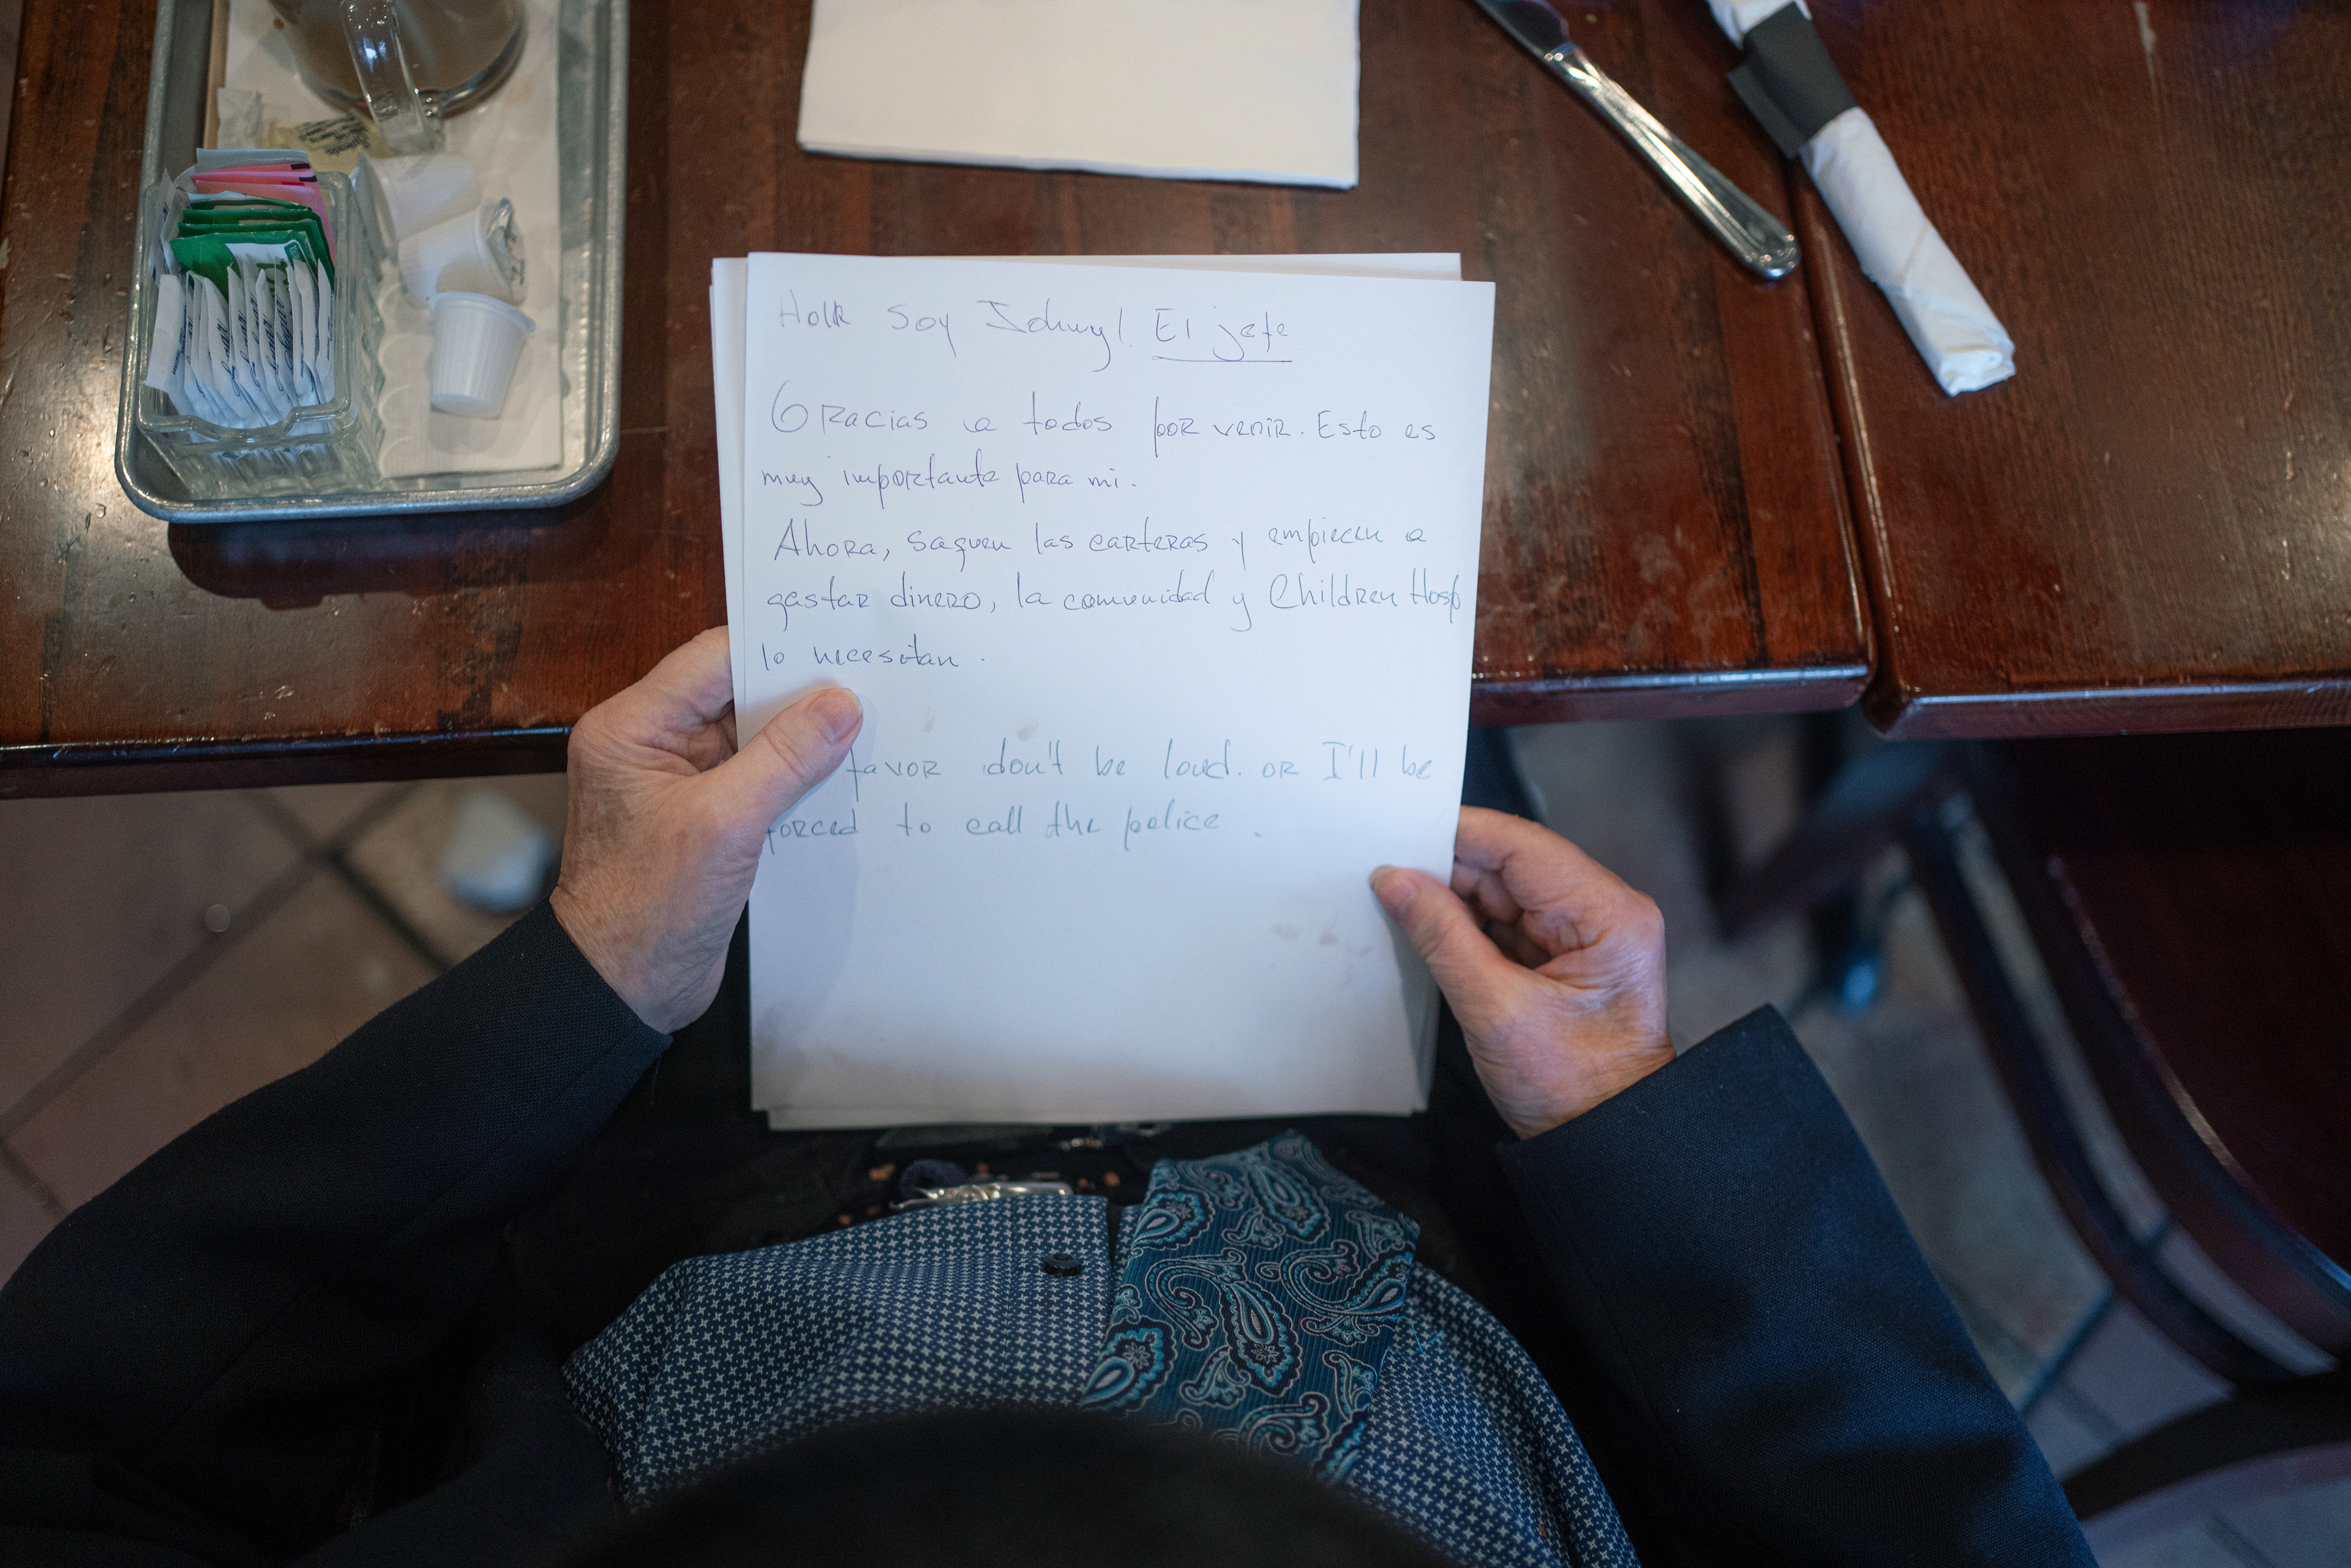 Hola soy Johnny! El jefe
Gracias a todos por venir. Esto es
muy importante para mi.
Ahora, saquen las carteras y empiecen a
gastar dinero, la comunidad y Children Hosp
lo necesitan.
favor don't be loud. or I'll be
forced to call the police.